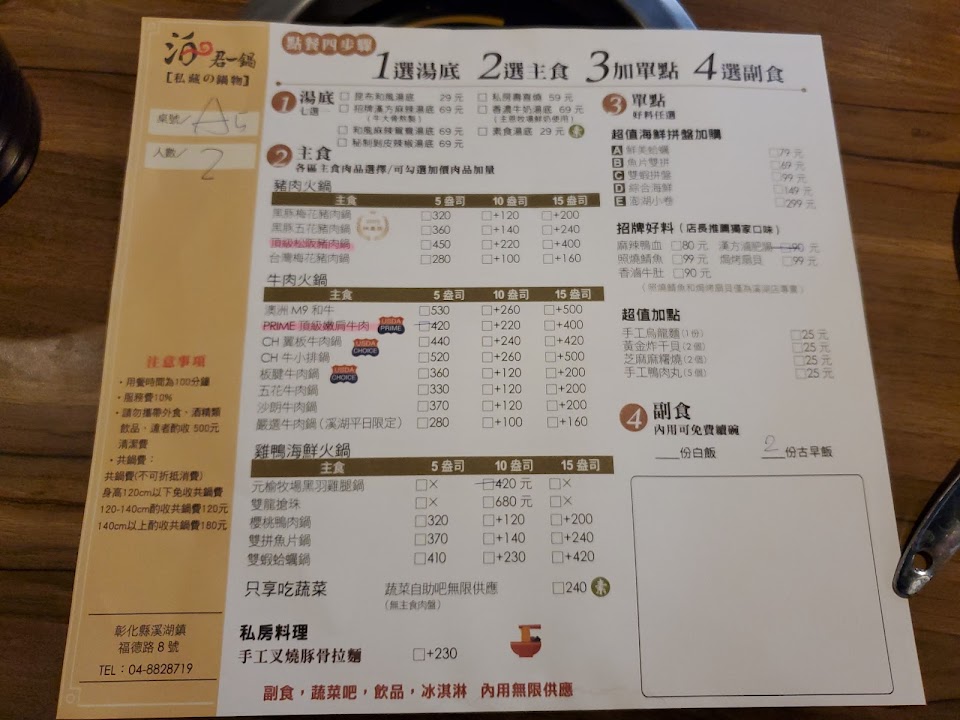 点餐四步驟
1選湯底 2選主食 3加單點 4選副食
君一鍋
[私藏の鍋物]
桌號/ A4
人數/ 2
1 湯底
七選
□ 昆布和風湯底 29 元
□ 招牌漢方麻辣湯底 69 元
(牛大骨熬製)
□ 和風麻辣鴛鴦湯底 69 元
□ 秘制剝皮辣椒湯底 69 元
□ 私房壽喜燒 59 元
□ 香濃牛奶湯底 69 元
(主恩牧場鮮奶使用)
□ 素食湯底 29 元 素
2 主食
各區主食肉品選擇/可勾選加價肉品加量
豬肉火鍋
主食 5 盎司 10 盎司 15 盎司
黑豚梅花豬肉鍋 □320 □+120 □+200
黑豚五花豬肉鍋 □360 □+140 □+240
頂級松阪豬肉鍋 □450 □+220 □+400
台灣梅花豬肉鍋 □280 □+100 □+160
牛肉火鍋
主食 5 盎司 10 盎司 15 盎司
澳洲 M9 和牛 □530 □+260 □+500
PRIME 頂級嫩肩牛肉 USDA PRIME □420 □+220 □+400
CH 翼板牛肉鍋 USDA CHOICE □440 □+240 □+420
CH 牛小排鍋 □520 □+260 □+500
板腱牛肉鍋 USDA CHOICE □360 □+120 □+200
五花牛肉鍋 □330 □+120 □+200
沙朗牛肉鍋 □370 □+120 □+200
嚴選牛肉鍋(溪湖平日限定) □280 □+100 □+160
雞鴨海鮮火鍋
主食 5 盎司 10 盎司 15 盎司
元榆牧場黑羽雞腿鍋 □× □420 元 □×
雙龍搶珠 □× □680 元 □×
櫻桃鴨肉鍋 □320 □+120 □+200
雙拼魚片鍋 □370 □+140 □+240
雙蝦蛤蠣鍋 □410 □+230 □+420
只享吃蔬菜 蔬菜自助吧無限供應 □240 素
(無主食肉盤)
私房料理
手工叉燒豚骨拉麵 □+230
副食，蔬菜吧，飲品，冰淇淋 內用無限供應
3 單點
好料任選
超值海鮮拼盤加購
A 鮮美蛤蠣 □79 元
B 魚片雙拼 □69 元
C 雙蝦拼盤 □99 元
D 綜合海鮮 □149 元
E 澎湖小卷 □299 元
招牌好料(店長推薦獨家口味)
麻辣鴨血 □80 元 漢方滷肥腸 □90 元
照燒鯖魚 □99 元 焗烤扇貝 □99 元
香滷牛肚 □90 元
(照燒鯖魚和焗烤扇貝僅為溪湖店專賣)
超值加點
手工烏龍麵(1份) □25 元
黃金炸干貝(2個) □25 元
芝麻麻糬燒(2個) □25 元
手工鴨肉丸(5個) □25 元
4 副食
內用可免費續碗
___份白飯 2 份古早飯
注意事項
・用餐時間為100分鐘
・服務費10%
・請勿攜帶外食、酒精類
飲品，違者酌收 500元
清潔費
・共鍋費：
共鍋費(不可折抵消費)
身高120cm以下免收共鍋費
120-140cm酌收共鍋費120元
140cm以上酌收共鍋費180元
彰化縣溪湖鎮
福德路 8 號
TEL：04-8828719